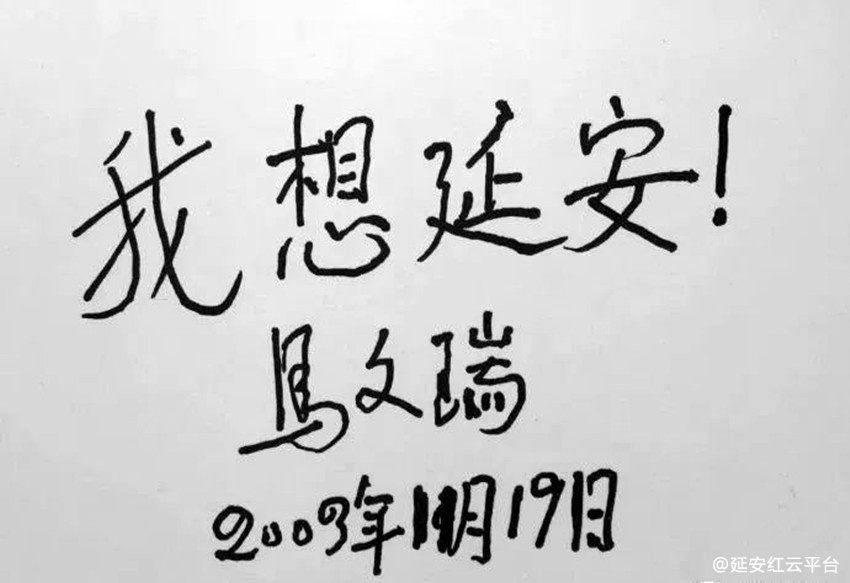 我想延安!
馬文瑞
2003年11月19日
@延安红云平台